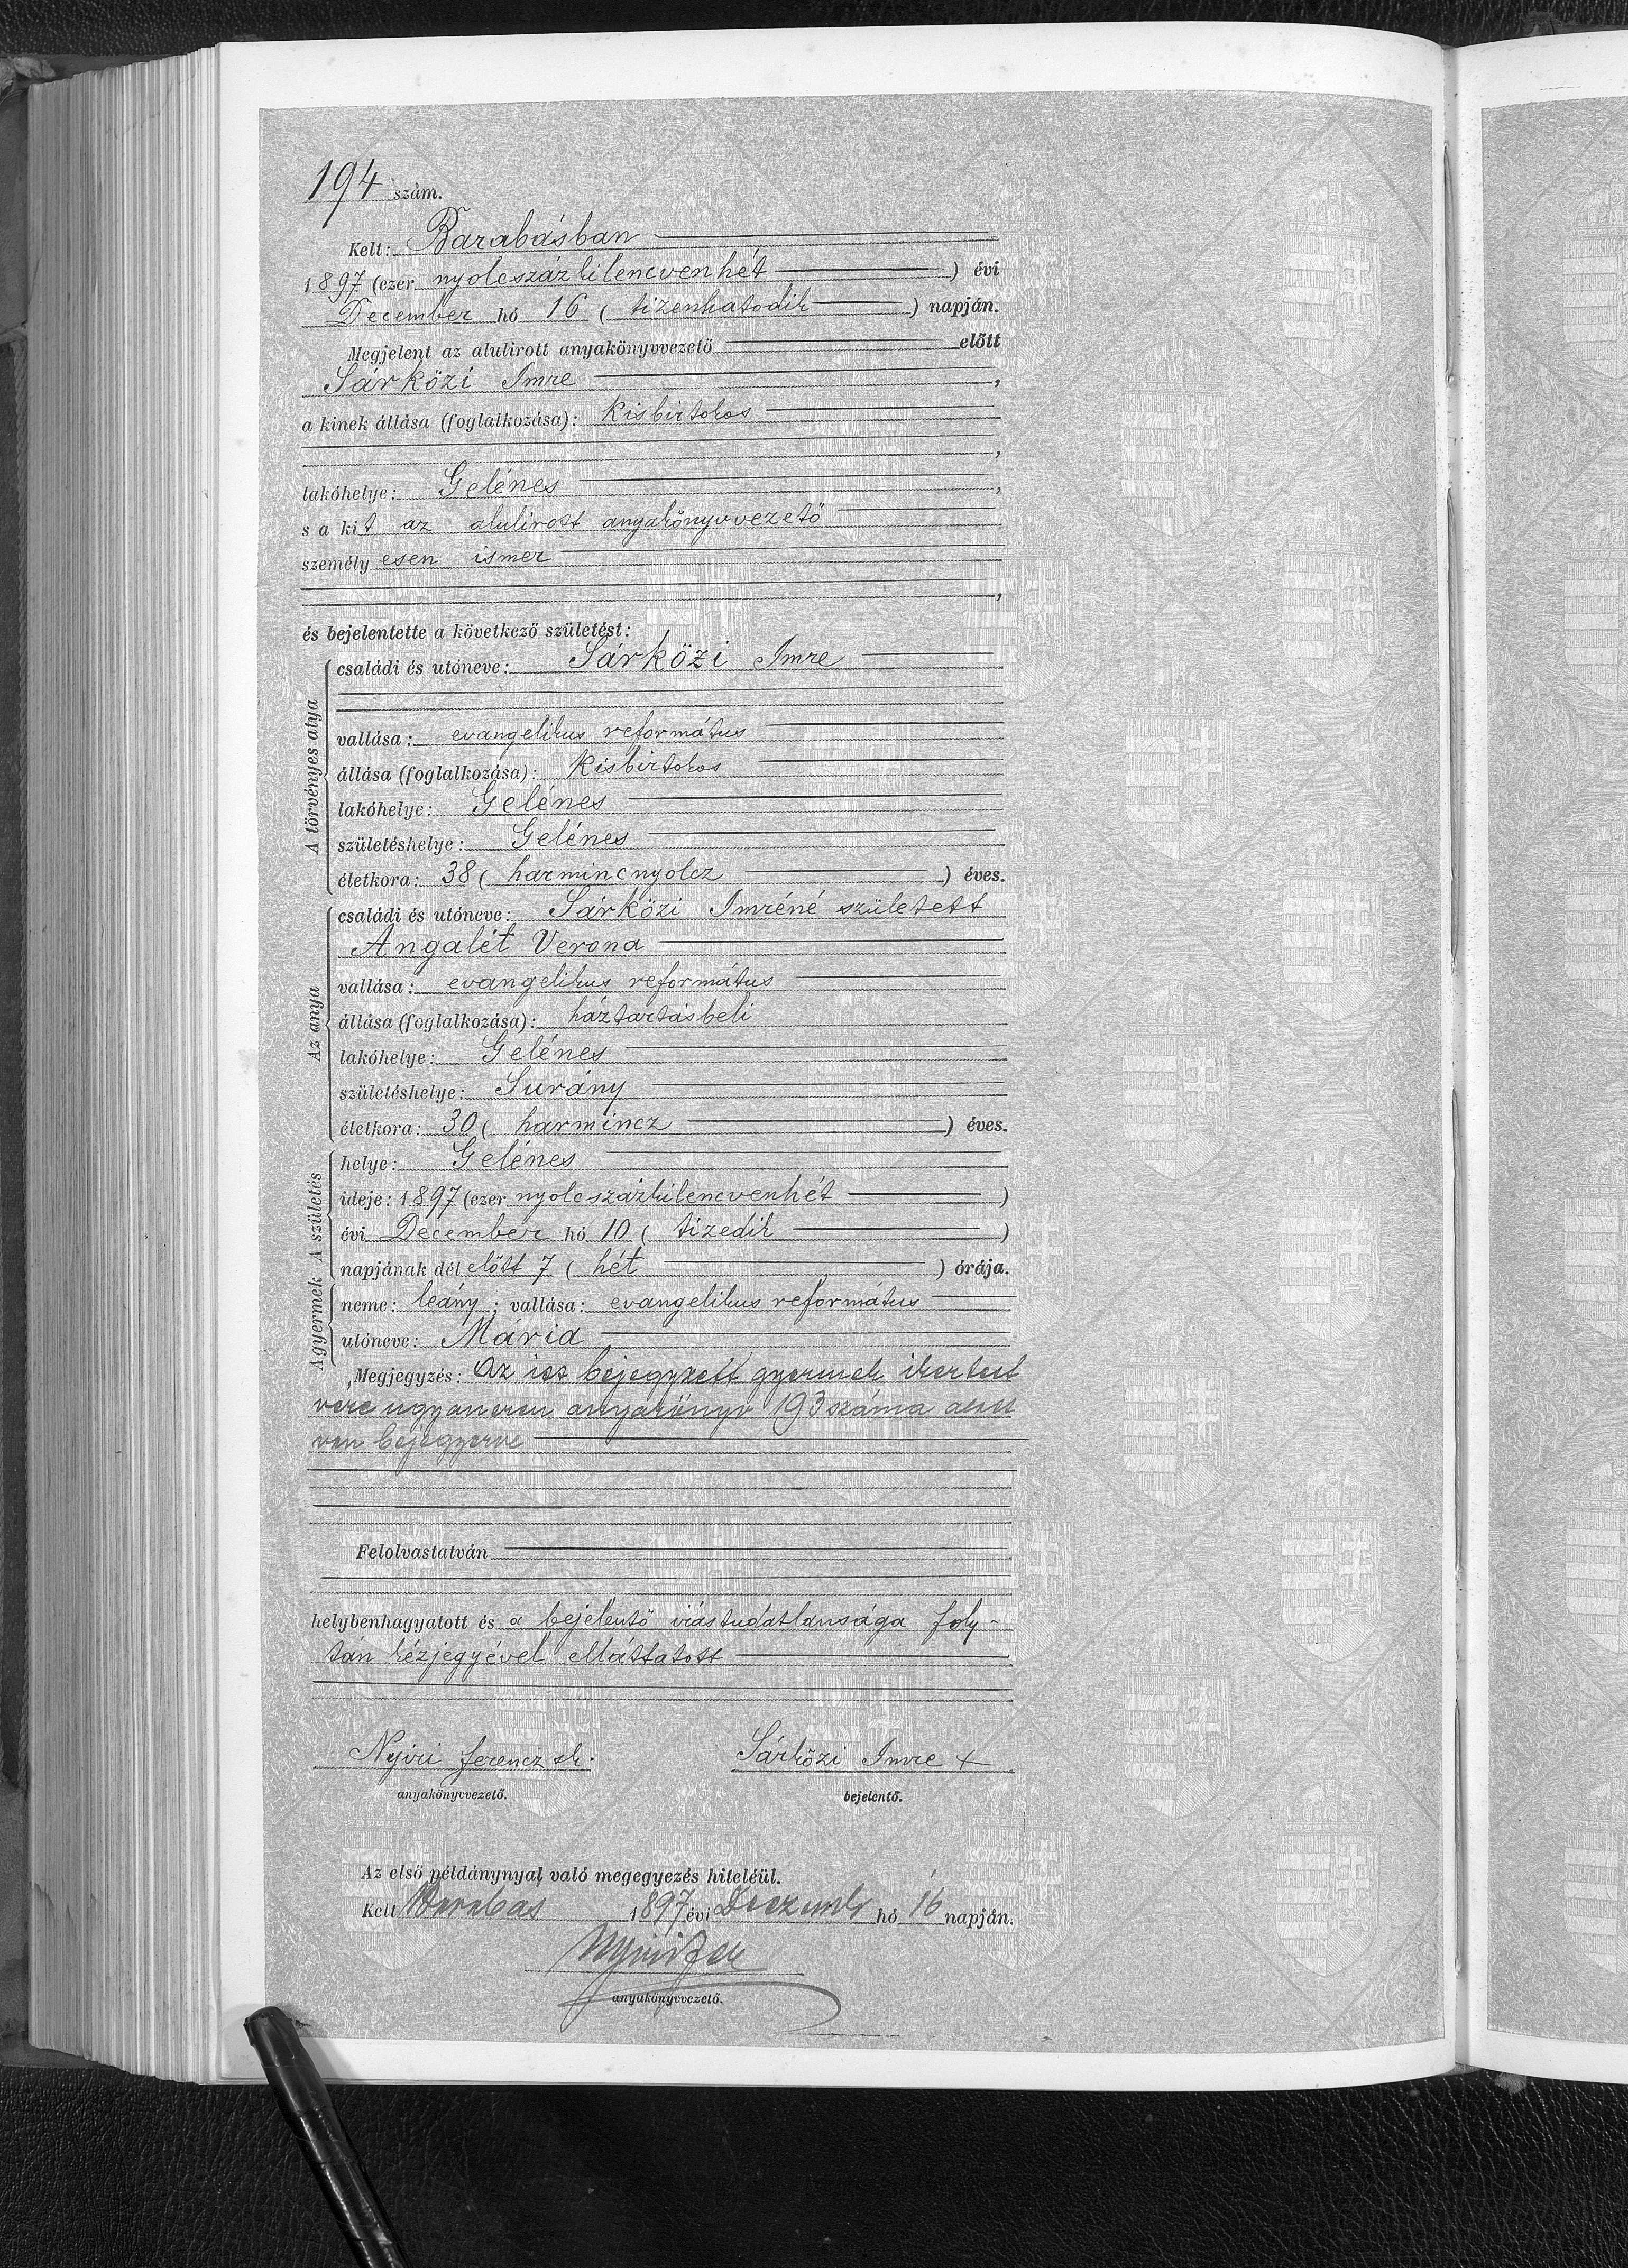 194 szám.
Kelt: Barabásban
1897 (ezer nyolcszázkilencvenhét) évi
December hó 16 (tizenhatodik) napján.
Megjelent az alulirott anyakönyvvezető előtt
Sárközi Imre,
a kinek állása (foglalkozása): Kisbirtokos
,
lakóhelye: Gelénes,
s a kit az alulirott anyakönyvvezető
személyesen ismer
,
és bejelentette a következő születést:
A törvényes atya
családi és utóneve: Sárközi Imre
vallása: evangelikus református
állása (foglalkozása): Kisbirtokos
lakóhelye: Gelénes
születéshelye: Gelénes
életkora: 38 (harmincnyolcz) éves.
Az anya
családi és utóneve: Sárközi Imréné született
Angalét Verona
vallása: evangelikus református
állása (foglalkozása): háztartásbeli
lakóhelye: Gelénes
születéshelye: Surány
életkora: 30 (harmincz) éves.
A születés
helye: Gelénes
ideje: 1897 (ezer nyolcszázkilencvenhét)
évi December hó 10 (tizedik)
napjának dél előtt 7 (hét) órája.
A gyermek
neme: leány; vallása: evangelikus református
utóneve: Mária
Megjegyzés: Az itt bejegyzett gyermek ikertest
vére ugyanezen anyakönyv 193 száma alatt
van bejegyezve
Felolvastatván
helybenhagyatott és a bejelentő irástudatlansága foly-
tán kézjegyével elláttatott
Nyiri Ferencz sk. Sárközi Imre +
anyakönyvvezető. bejelentő.
Az első példánynyal való megegyezés hiteléül.
Kelt Barabás 1897 évi Deczemb hó 16 napján.
Nyiri
anyakönyvvezető.